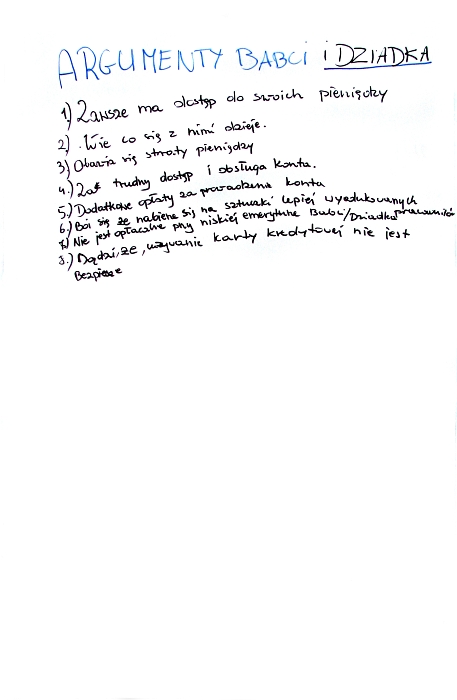 ARGUMENTY BABCI i DZIADKA
1) Zawsze ma dostęp do swoich pieniędzy
2) Wie co się z nimi dzieje.
3) Obawia się straty pieniędzy
4.) trudny dostęp i obsługa konta.
5.) Dodatkowe opłaty za prowadzenie konta
6.) Boi się że nabierze się na sztuczki lepiej wyedukowanych pracowników
7) Nie jest opłacalne przy niskiej emeryturze Babci/Dziadka
8.) Sądzi, że używanie karty kredytowej nie jest
Bezpieczne